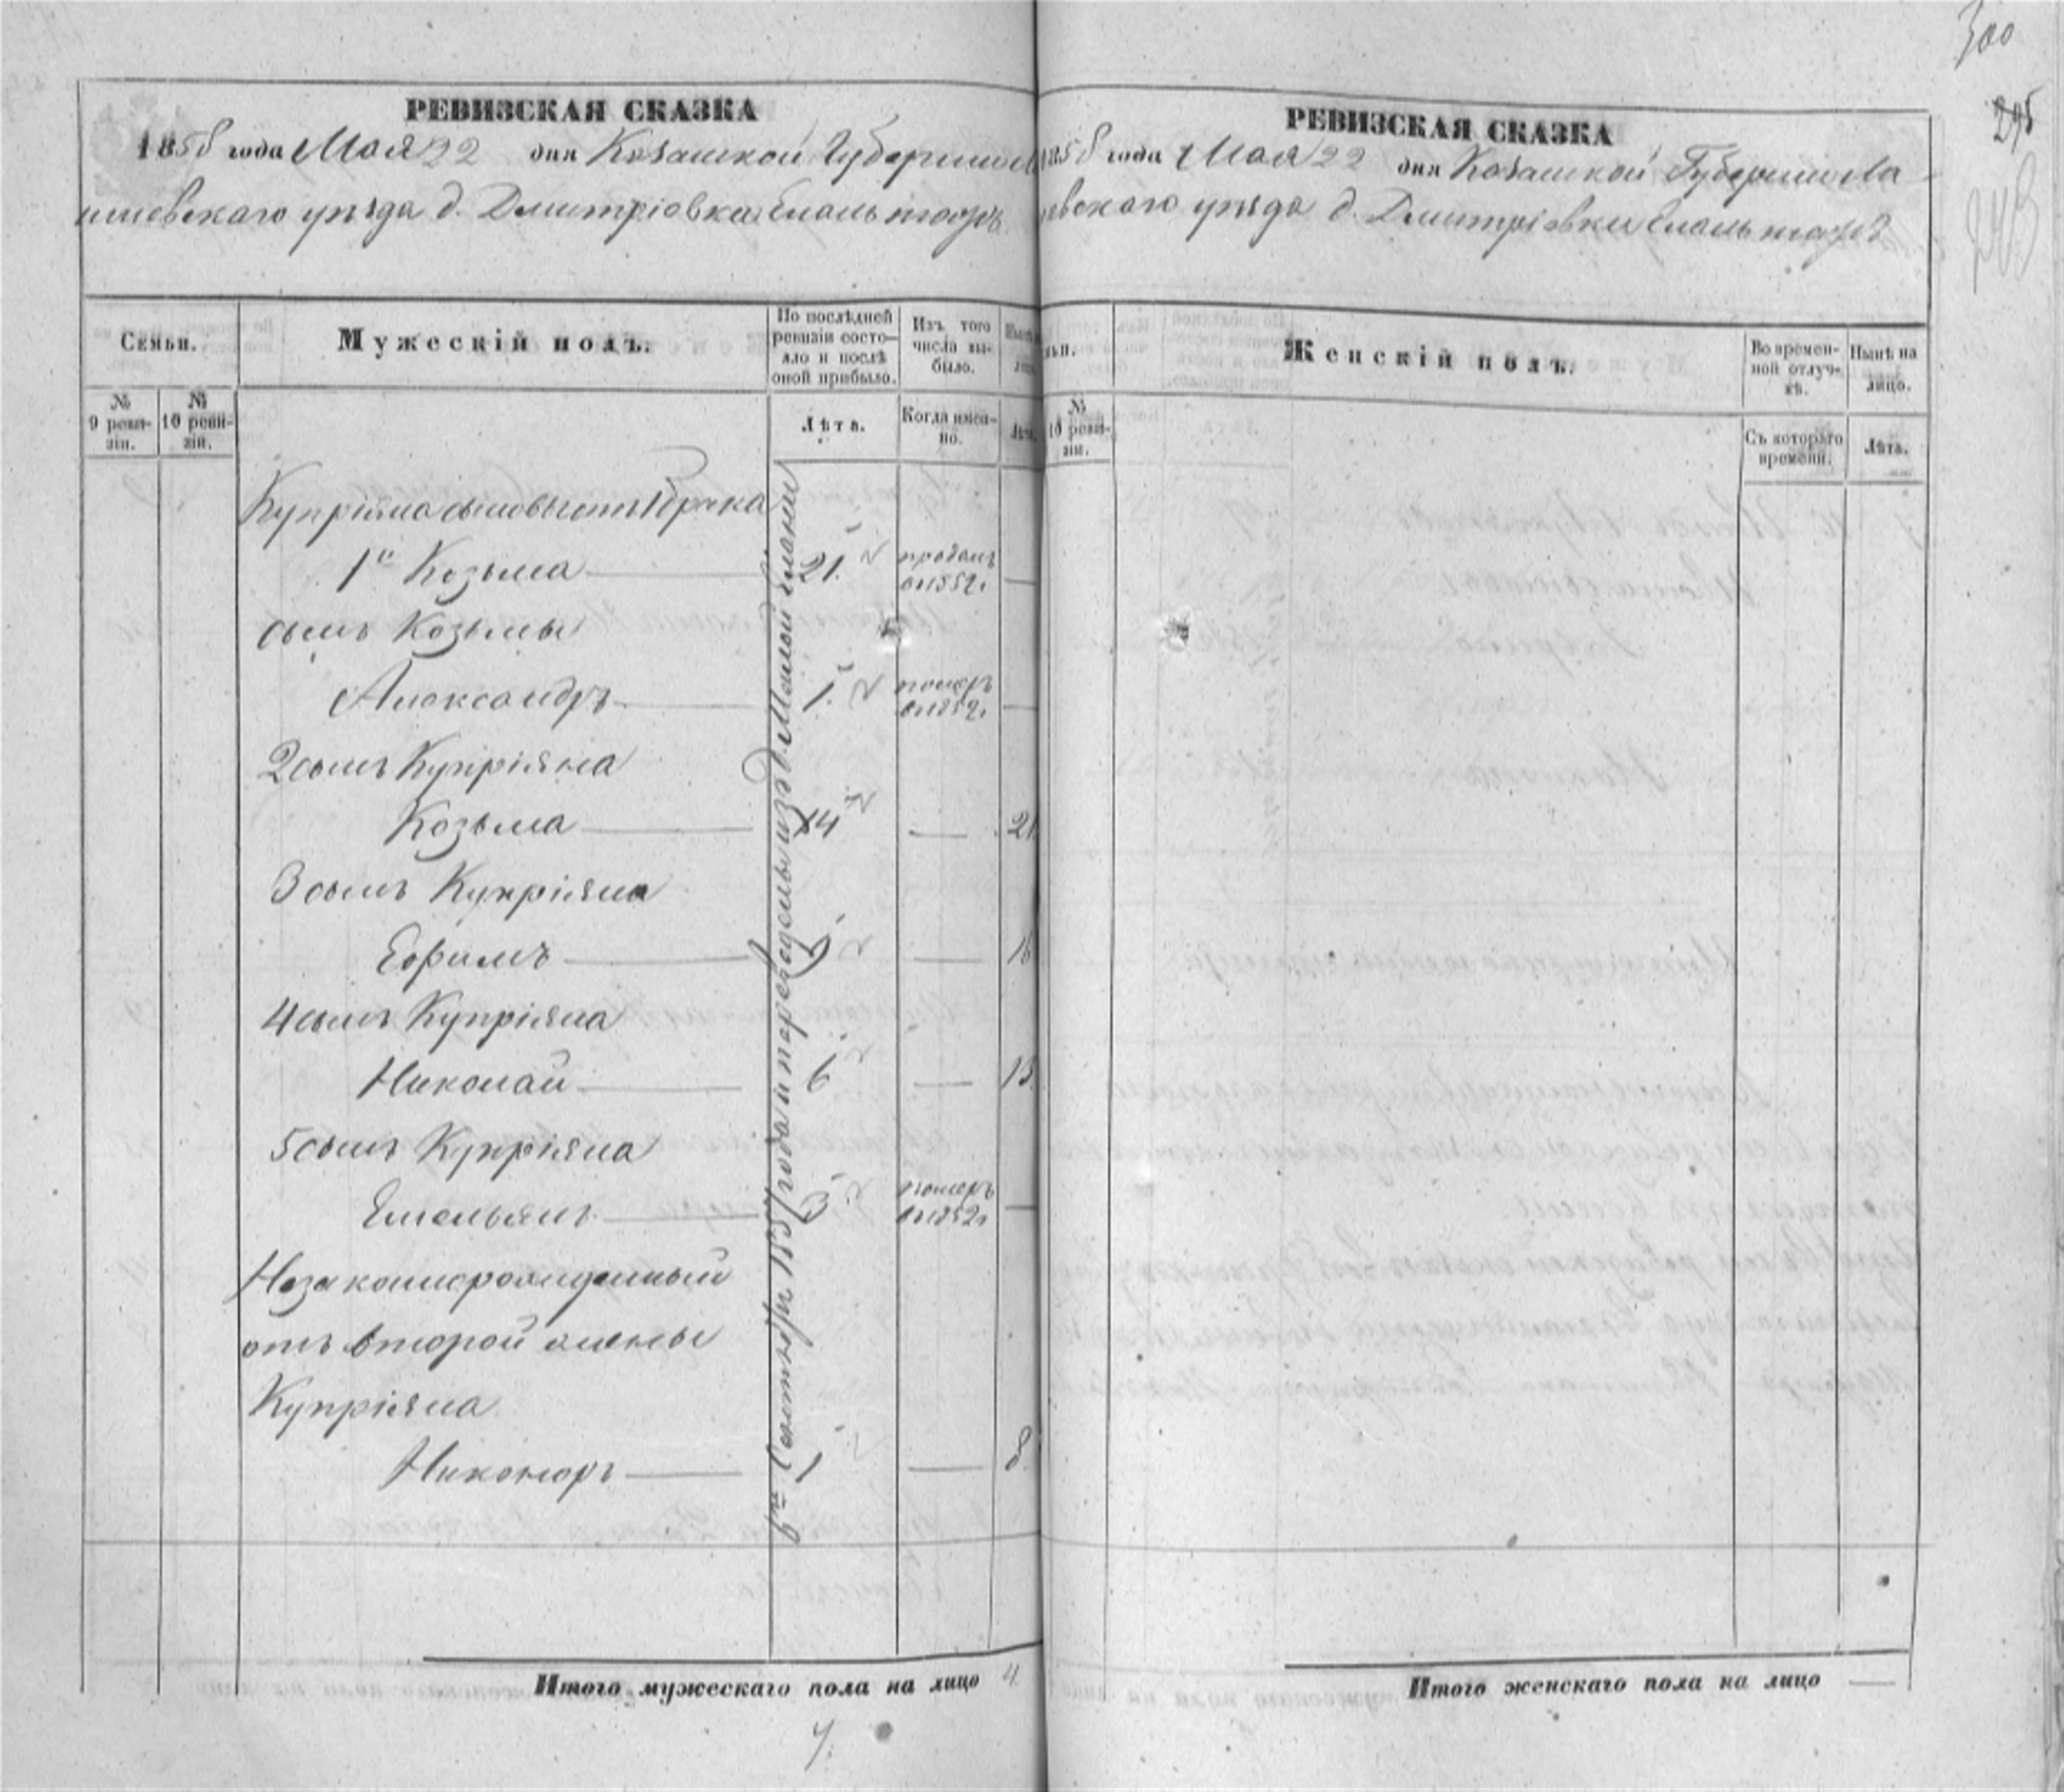 300
295
РЕВИЗСКАЯ СКАЗКА
1858 года Мая 22 дня Казанской Губернии Ла
ишевскаго уѣзда д. Дмитріовка
Семьи.
Мужескій полъ.
По послѣдней ревизіи состояло и послѣ оной прибыло.
Изъ того числа выбыло.
№ 9 ревизіи.
№ 10 ревизіи.
Лѣта.
Когда именно.
Лѣта.
Купріяна сыновья отъ 1 брака
1й Козьма 21. проданъ въ 1852г.
сынъ Козьмы
Александръ 1. померъ въ 1852г.
2 сынъ Купріяна
Козьма 14 — 21
3 сынъ Купріяна
Ефимъ 9 — 16
4 сынъ Купріяна
Николай 6 — 13
5 сынъ Купріяна
Емельянъ 3 померъ въ 1852г.
Незаконнорожденный
отъ второй жены
Купріяна
Никоноръ 1 — 8
Сентября 1857 года и переведены из д. Малой Елани
Итого мужескаго пола на лицо 4
7.
РЕВИЗСКАЯ СКАЗКА
1858 года Мая 22 дня Казанской Губерніи Ла
евскаго уѣзда д. Дмитріовки
№ 10 ревизіи.
Женскій полъ.
Во временной отлучкѣ.
Нынѣ на лицо.
Съ котораго времени.
Лѣта.
Итого женскаго пола на лицо —